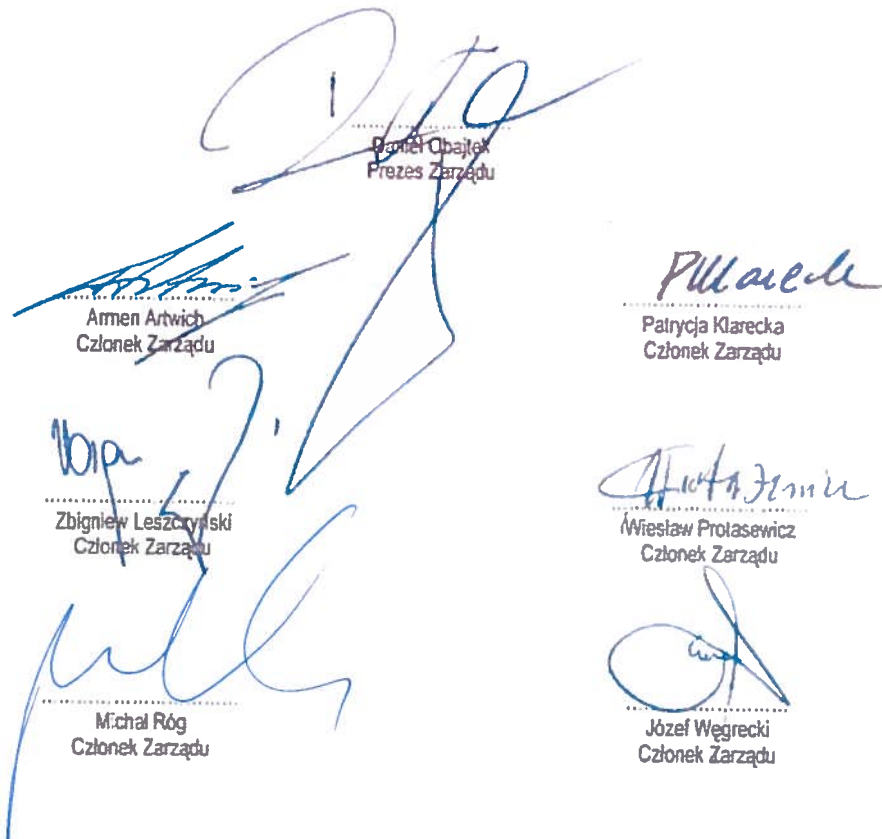 Daniel Obajtek
Prezes Zarządu
Armen Artwich
Członek Zarządu
Patrycja Klarecka
Członek Zarządu
Zbigniew Leszczyński
Członek Zarządu
Wiesław Protasewicz
Członek Zarządu
Michał Róg
Członek Zarządu
Józef Węgrecki
Członek Zarządu